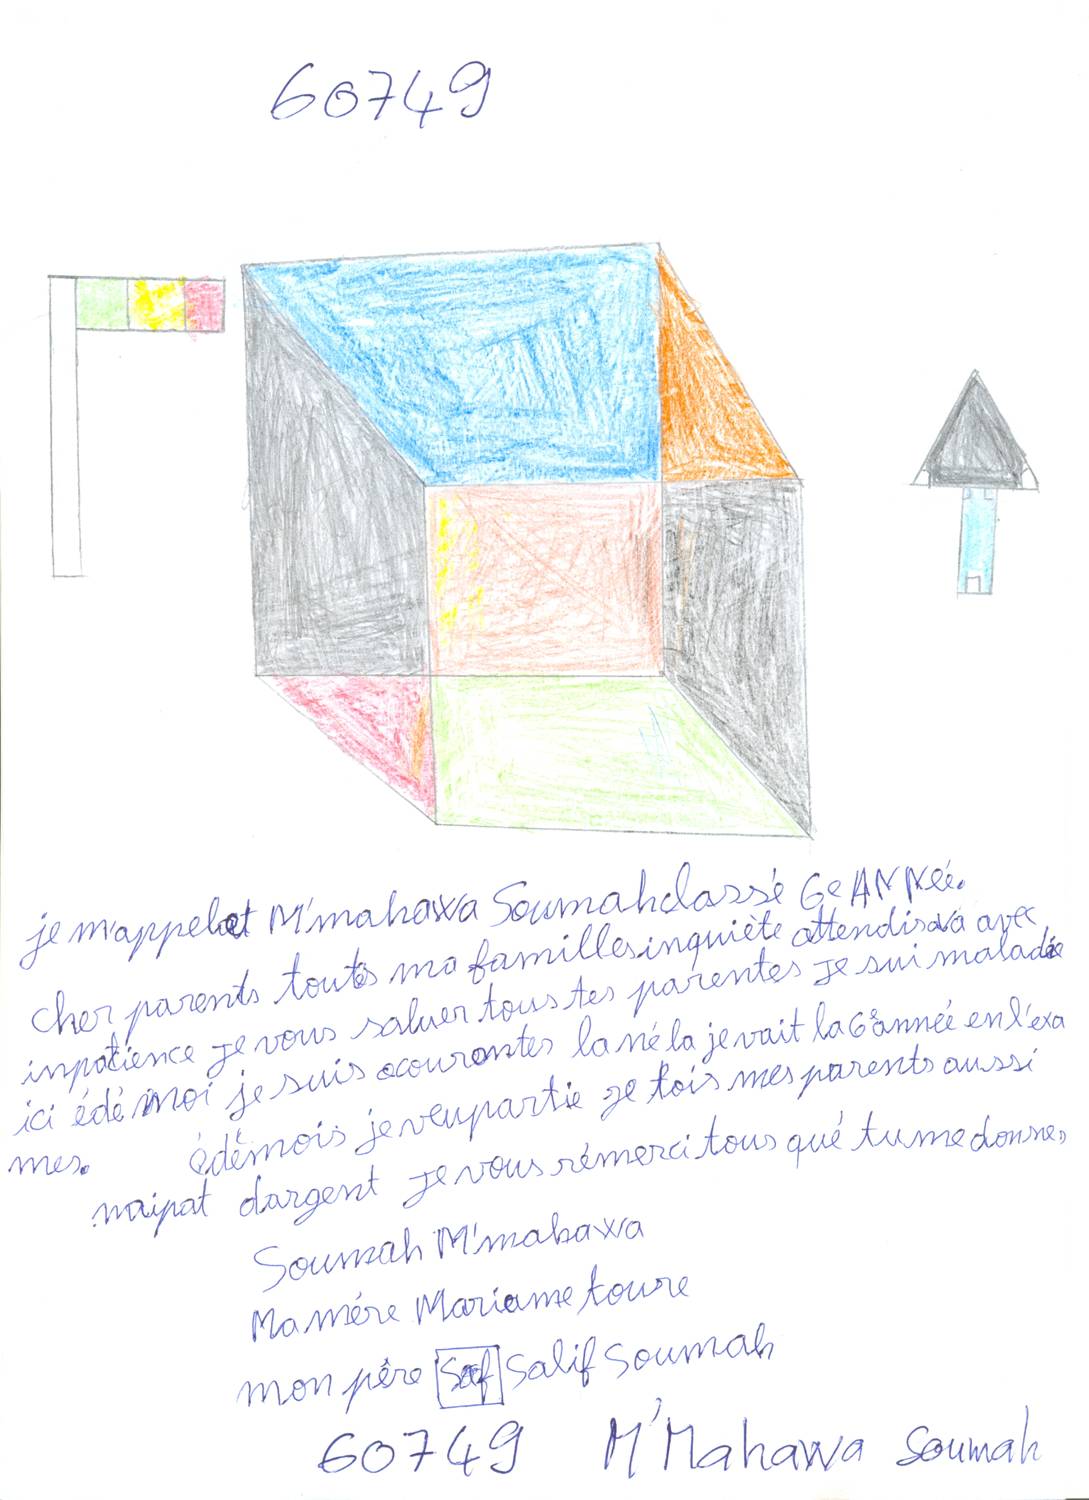 60749
je m'appelet M'mahawa Soumah classé 6e ANNéé.
cher parents toutes ma familles inquiète attendisava avec
inpatience je vous saluer tous tes parentes je sui maladie
ici édé moi je suis acourantes la né la je vait la 6e année en l'exa
mes. édémois je veu partie je tois mes parents aussi
naipat dargent je vous rémerci tous qué tu me donnes
Soumah M'mahawa
Ma mére Mariame toure
mon père Saf Salif Soumah
60749 M'Mahawa Soumah